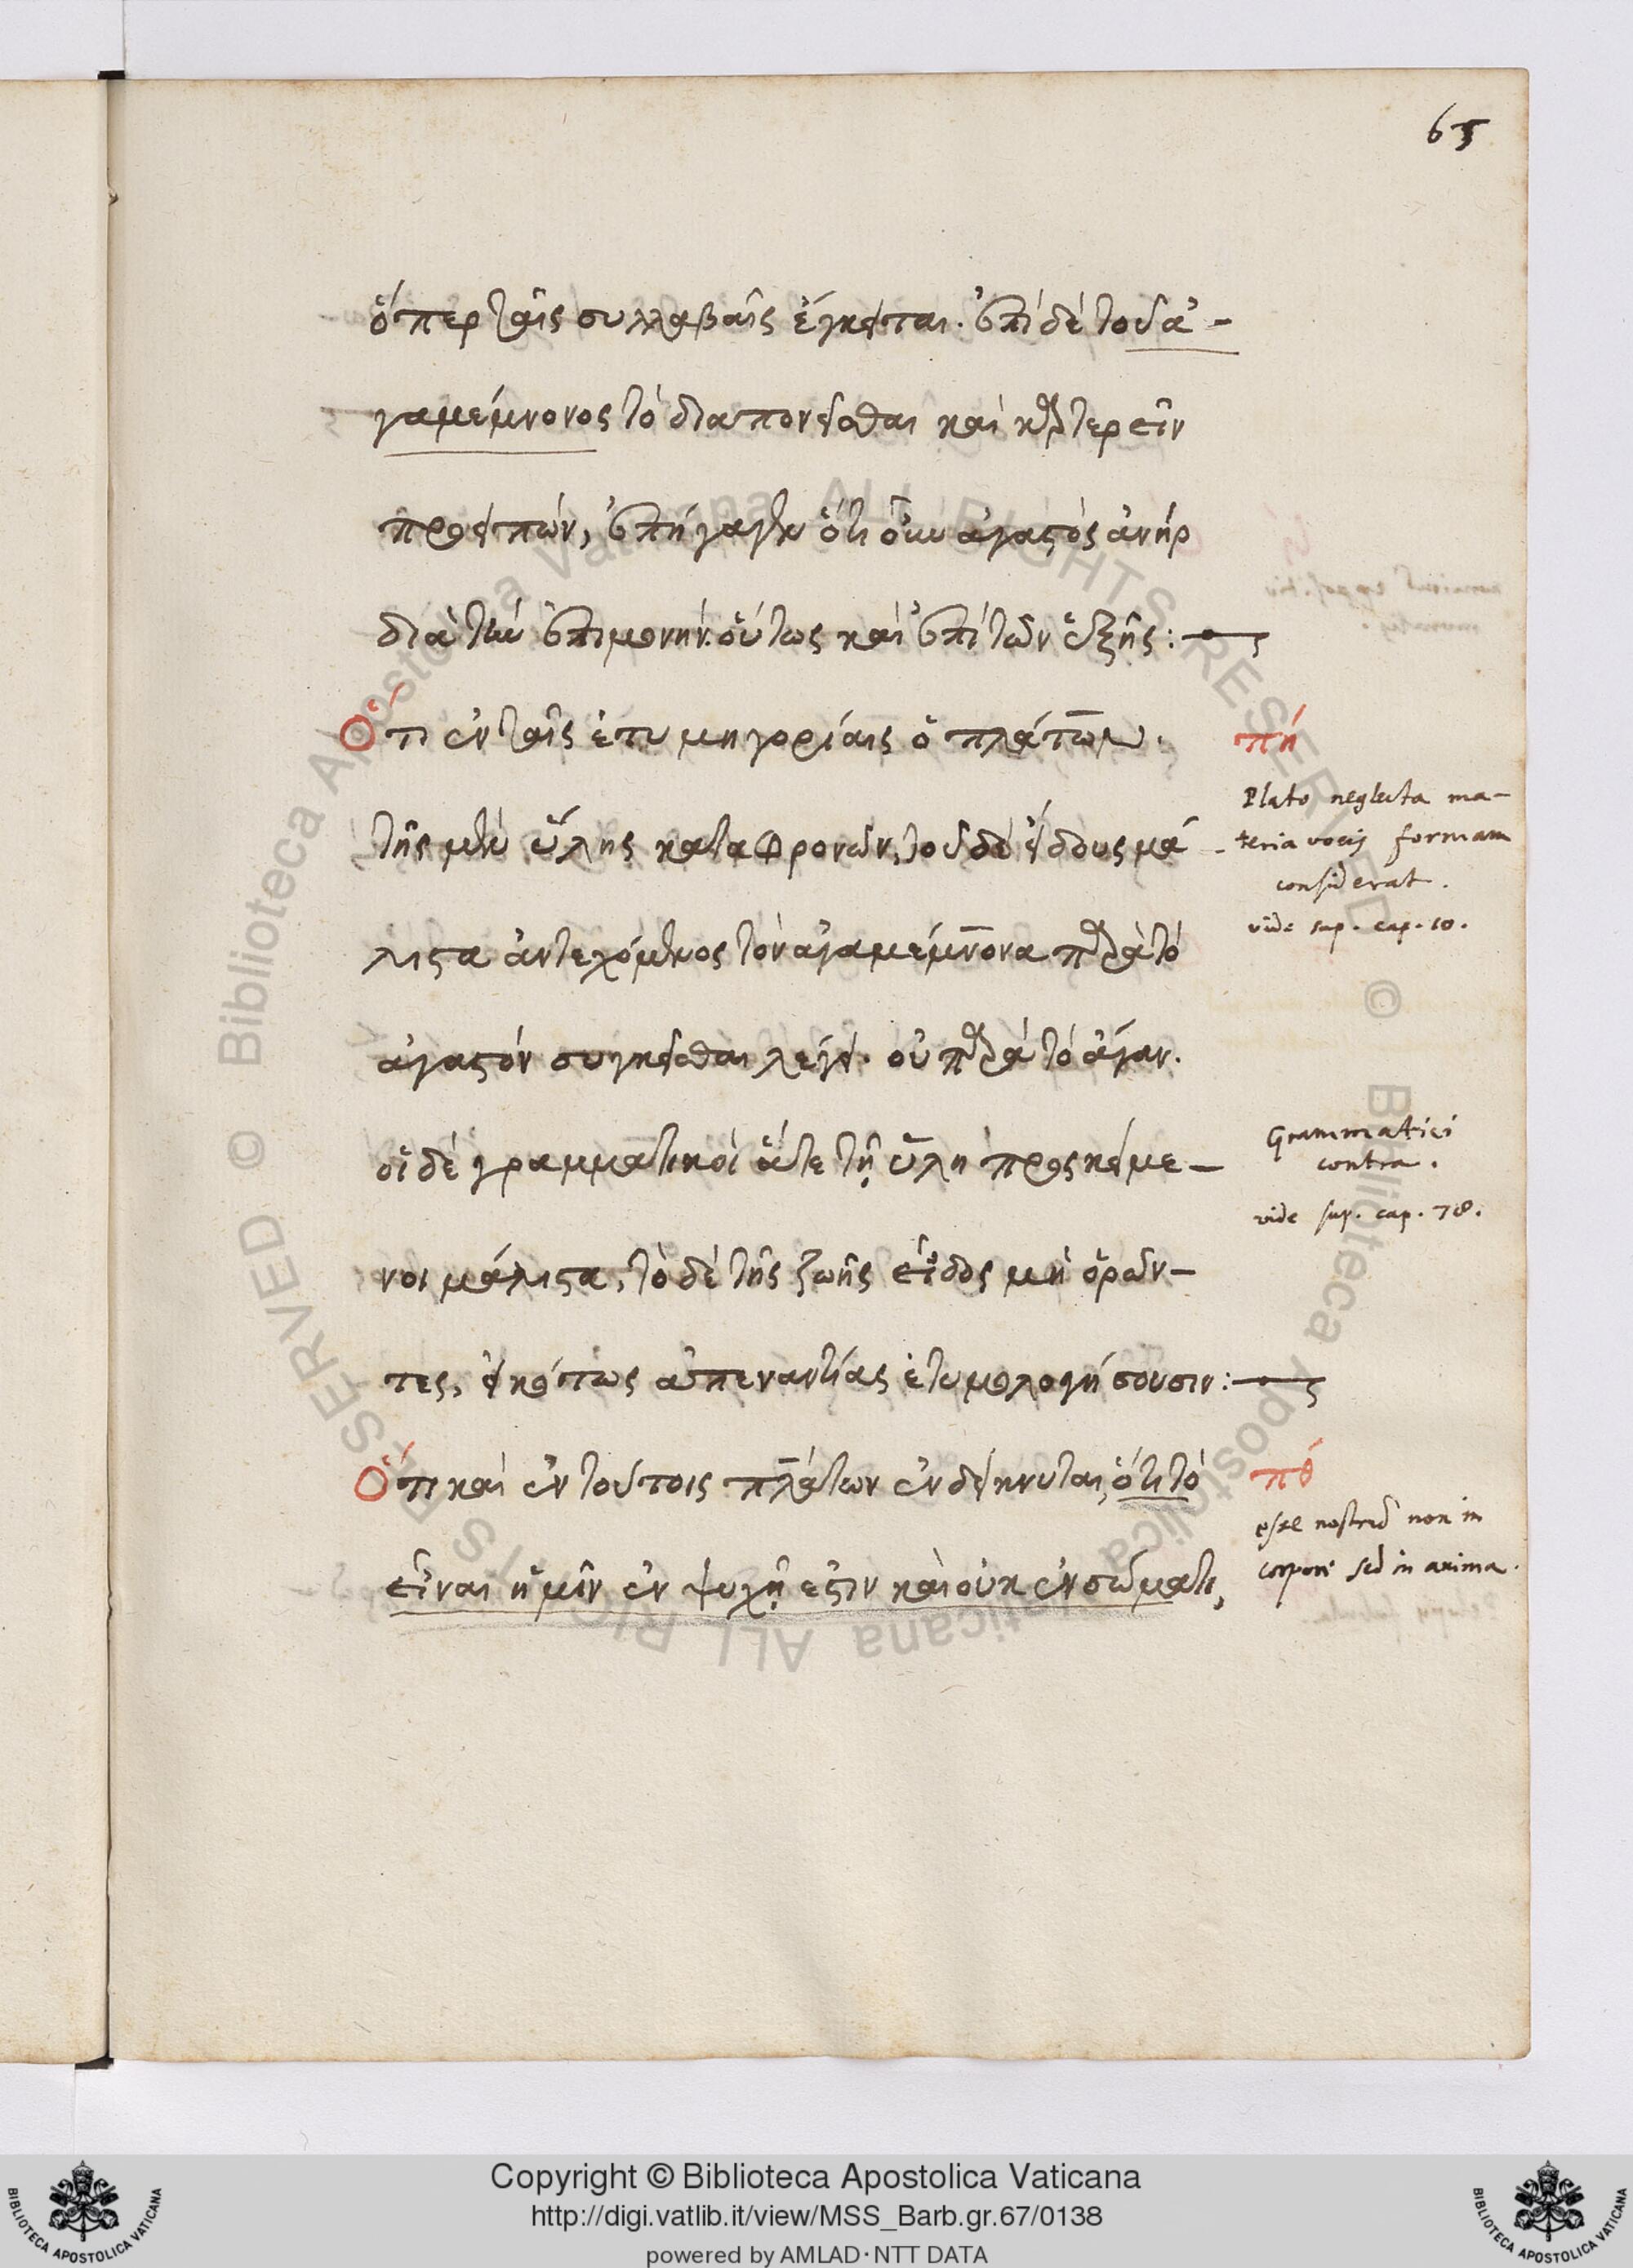 65
ὅπερ ταῖς συλλαβαῖς ἔγκειται. ἐπὶ δὲ τοῦ ἀ-
γαμέμνονος τὸ διαπονεῖσθαι καὶ καρτερεῖν
προειπών, ἐπήγαγεν ὅτι οὖν ἀγαστὸς ἀνὴρ
διὰ τὴν ἐπιμονήν. οὕτως καὶ ἐπὶ τῶν ἑξῆς:
Ὅτι ἐν ταῖς ἐτυμηγορίαις ὁ πλάτων.
πή
τῆς μὲν ὕλης καταφρονῶν, τοῦ δὲ εἴδους μά-
λιστα ἀντεχόμενος τὸν ἀγαμέμνονα παρὰ τὸ
ἀγαστὸν συγκεῖσθαι λέγει. οὐ παρὰ τὸ ἄγαν.
οἱ δὲ γραμματικοὶ ἅτε τῇ ὕλῃ προσκείμε-
νοι μάλιστα, τὸ δὲ τῆς ζωῆς εἶδος μὴ ὁρῶν-
τες, εἰκότως ἀπεναντίας ἐτυμολογήσουσιν:
Ὅτι καὶ ἐν τούτοις πλάτων ἐνδείκνυται, ὅτι τὸ
πθ
εἶναι ἡμῖν ἐν ψυχῇ ἐστιν καὶ οὐκ ἐν σώματι,
Plato neglecta ma-
teria vocis formam
considerat.
vide sup. cap. 10.
Grammatici
contra.
vide sup. cap. 78.
esse nostrū non in
corpore sed in anima.
Copyright © Biblioteca Apostolica Vaticana
http://digi.vatlib.it/view/MSS_Barb.gr.67/0138
powered by AMLAD · NTT DATA
BIBLIOTECA APOSTOLICA VATICANA
BIBLIOTECA APOSTOLICA VATICANA